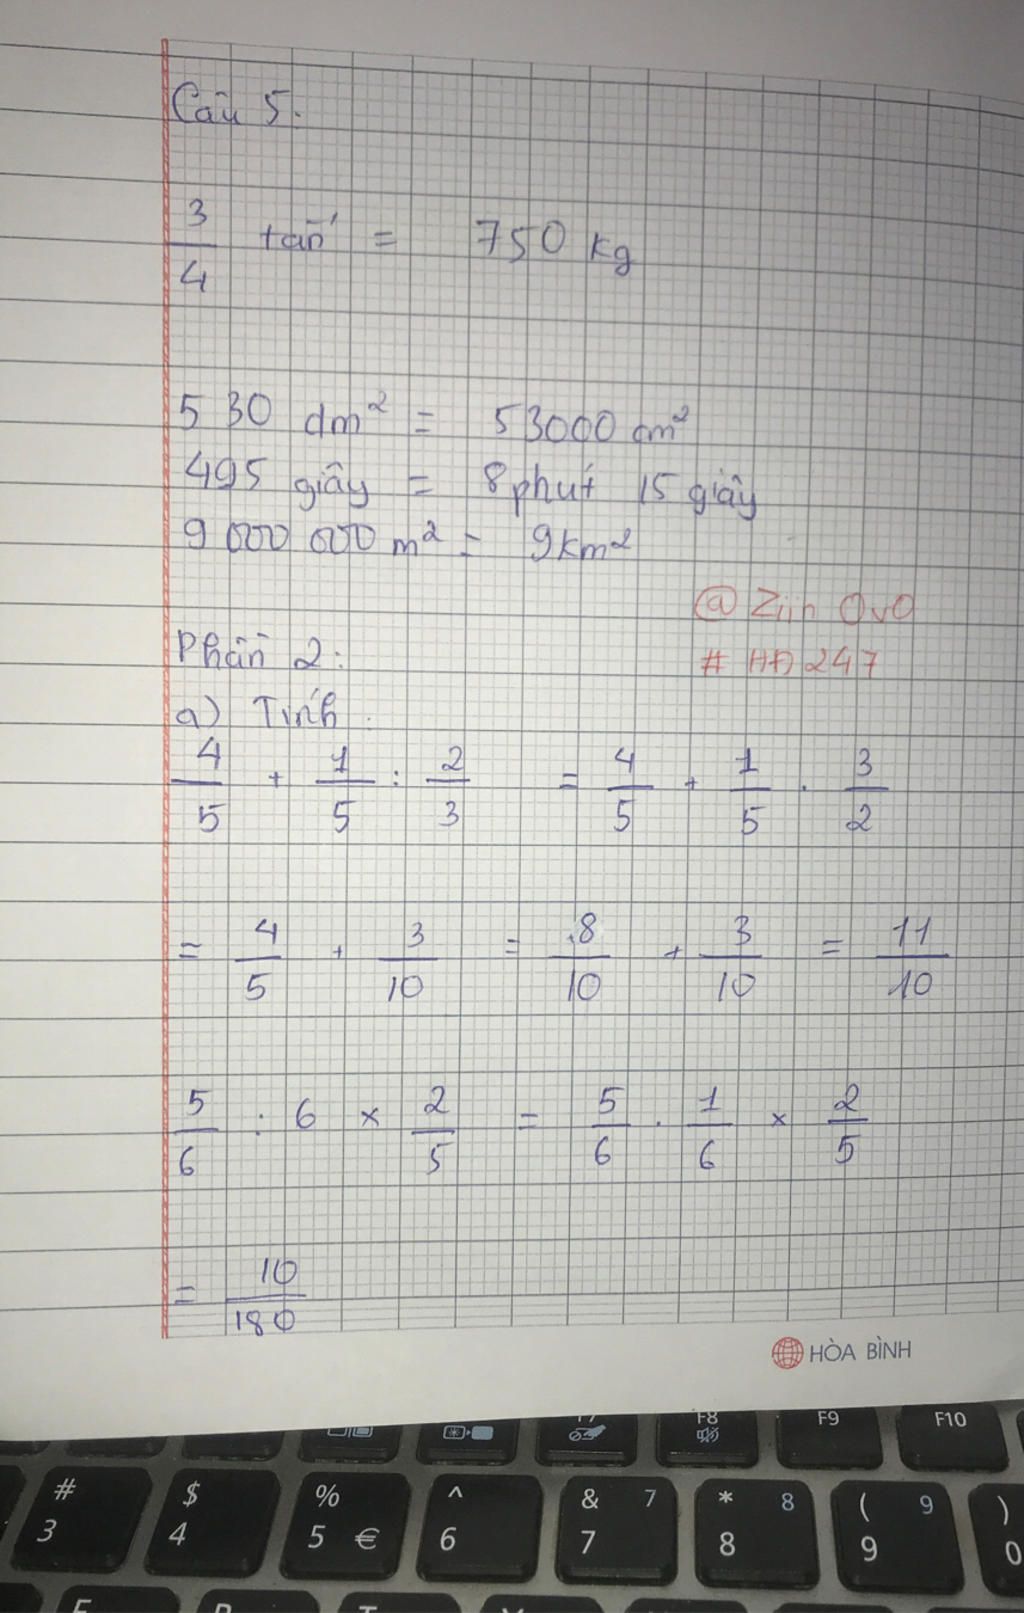 Câu 5.
3/4 tấn = 750 kg
530 dm² = 53000 cm²
495 giây = 8 phút 15 giây
9 000 000 m² = 9 km²
@ Ziin OvO
# HĐ 247
Phần 2:
a) Tính.
4/5 + 1/5 : 2/3 = 4/5 + 1/5 . 3/2
= 4/5 + 3/10 = 8/10 + 3/10 = 11/10
5/6 : 6 × 2/5 = 5/6 . 1/6 × 2/5
= 10/180
HÒA BÌNH
F8 F9 F10
# 3 $ 4 % 5 € ^ 6 & 7 7 * 8 8 ( 9 9 ) 0